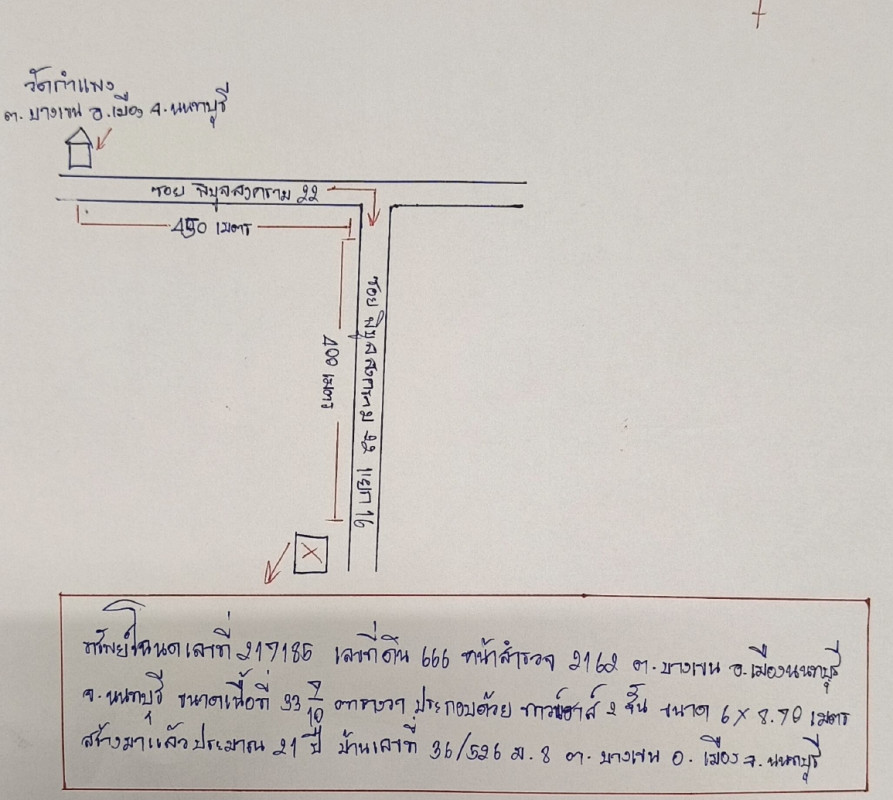 วัดกำแพง
ต. บางเขน อ.เมือง จ. นนทบุรี
ซอย พิบูลสงคราม 22
450 เมตร
ซอย พิบูลสงคราม 22 แยก 16
400 เมตร
X
ทรัพย์โฉนดเลขที่ 217185 เลขที่ดิน 666 หน้าสำรวจ 2162 ต. บางเขน อ.เมืองนนทบุรี
จ. นนทบุรี ขนาดเนื้อที่ 33 7/10 ตารางวา ประกอบด้วย ทาวน์เฮาส์ 2 ชั้น ขนาด 6 X 8.70 เมตร
สร้างมาแล้วประมาณ 21 ปี บ้านเลขที่ 36/526 ม. 8 ต. บางเขน อ. เมือง จ. นนทบุรี